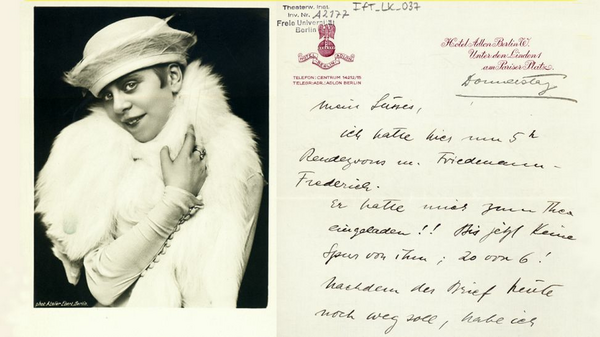 phot. Atelier Ebert, Berlin.
Theaterw. Inst.
Inv. Nr. A2177
Freie Universität
Berlin
IfT_LK_037
TELEFON: CENTRUM 14212/15
TELEGR.ADR.: ADLON BERLIN
Hotel Adlon Berlin W.
Unter den Linden 1
am Pariser Platz.
Donnerstag
Mein Süsses,
ich hatte hier um 5h
Rendezvous m. Friedemann-
Frederich.
Er hatte mich zum Thea
eingeladen!! Bis jetzt keine
Spur von ihm; 20 vor 6!
Nachdem der Brief heute
noch weg soll, habe ich